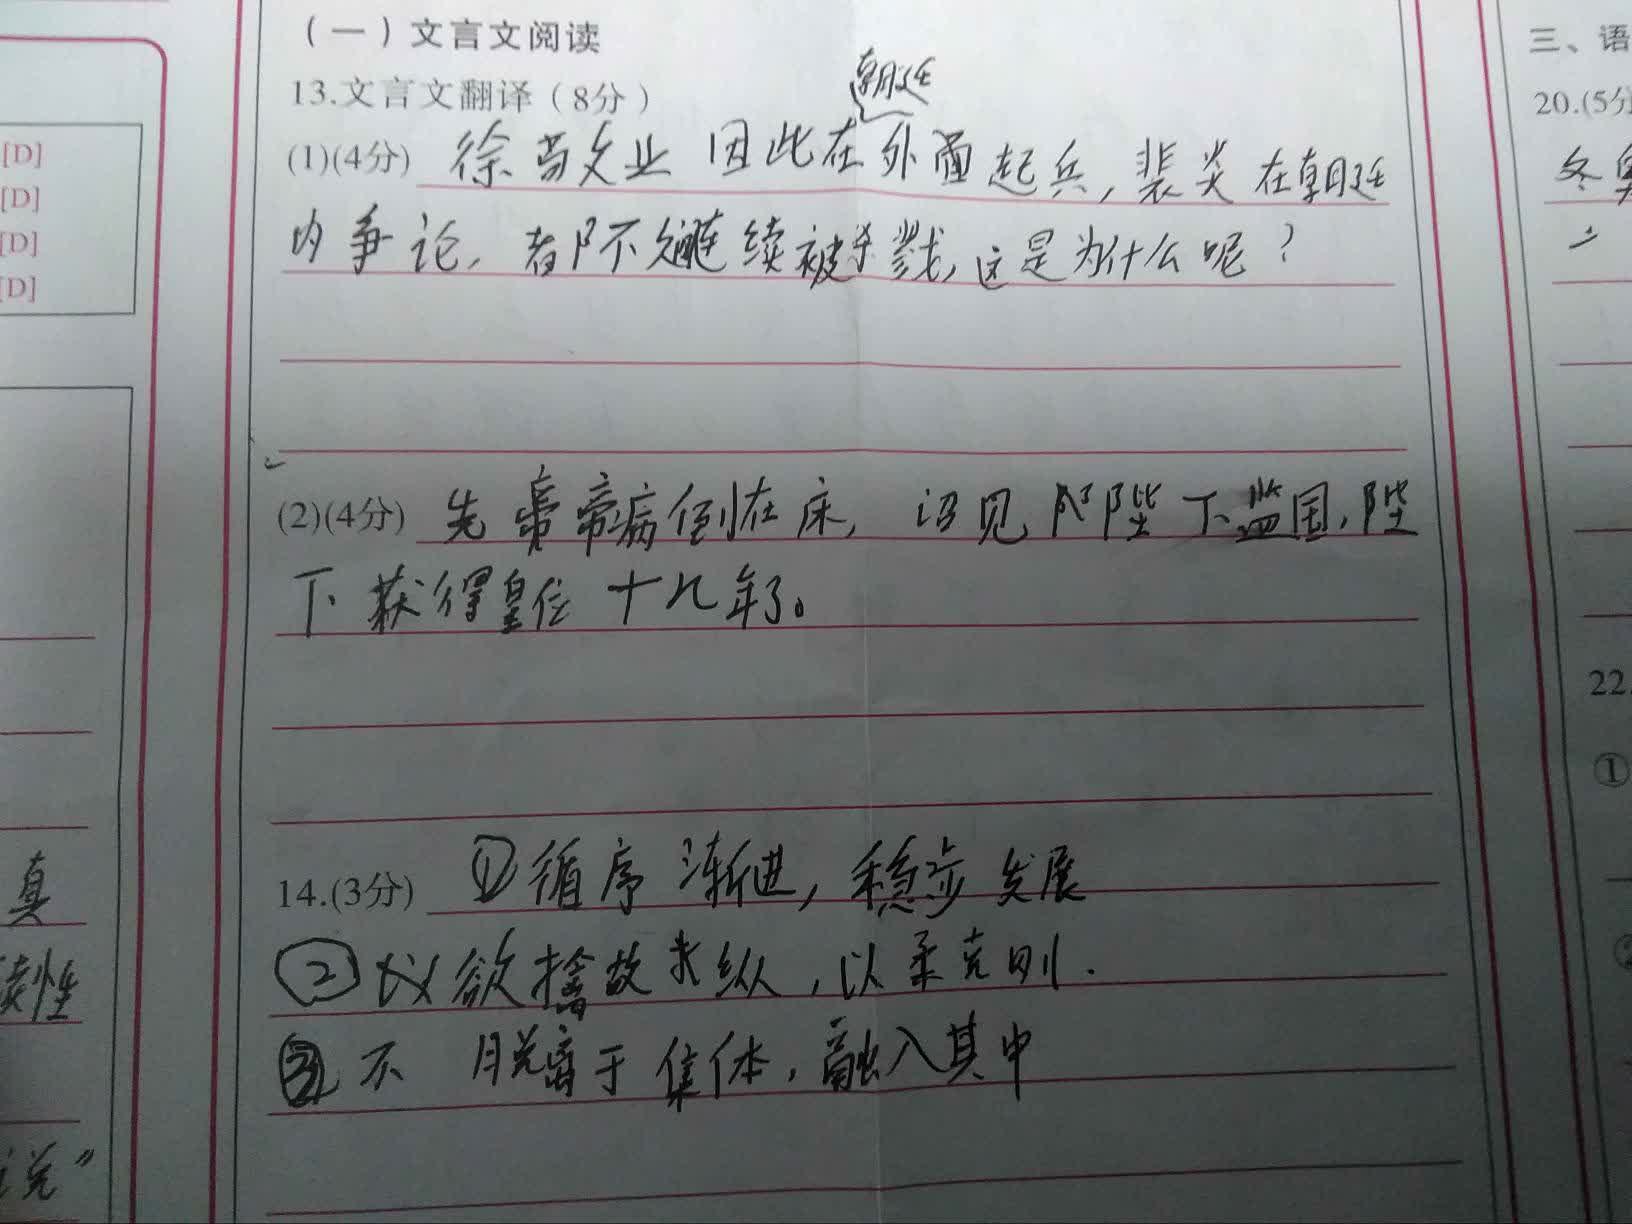 (一)文言文阅读
13.文言文翻译(8分)
朝廷
(1)(4分) 徐敬业因此在外面起兵,裴炎在朝廷
内争论,者阝不久连续被杀戮,这是为什么呢?
(2)(4分) 先帝病倒在床,诏见陛下监国,陛
下获得皇位十九年了。
14.(3分) ①循序渐进,稳步发展
②以欲擒故纵,以柔克刚.
③不脱离于集体,融入其中
[D]
[D]
[D]
[D]
真
读性
说”
三、语
20.(5分
冬
22.
①